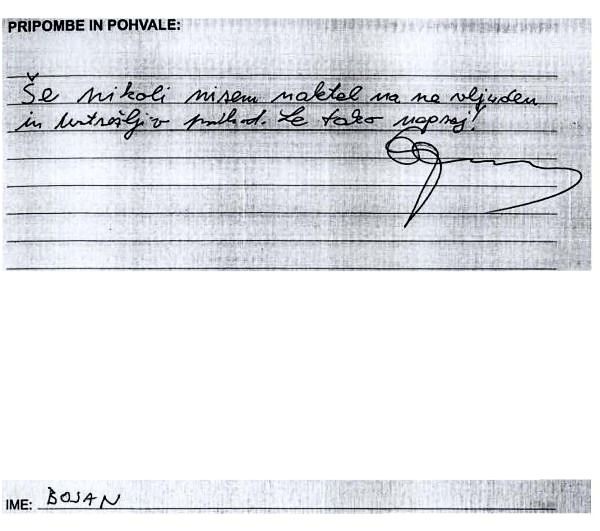 PRIPOMBE IN POHVALE:
Še nikoli nisem naletel na na vljuden
in ustrežljiv prihod. Le tako naprej!
IME: BOJAN